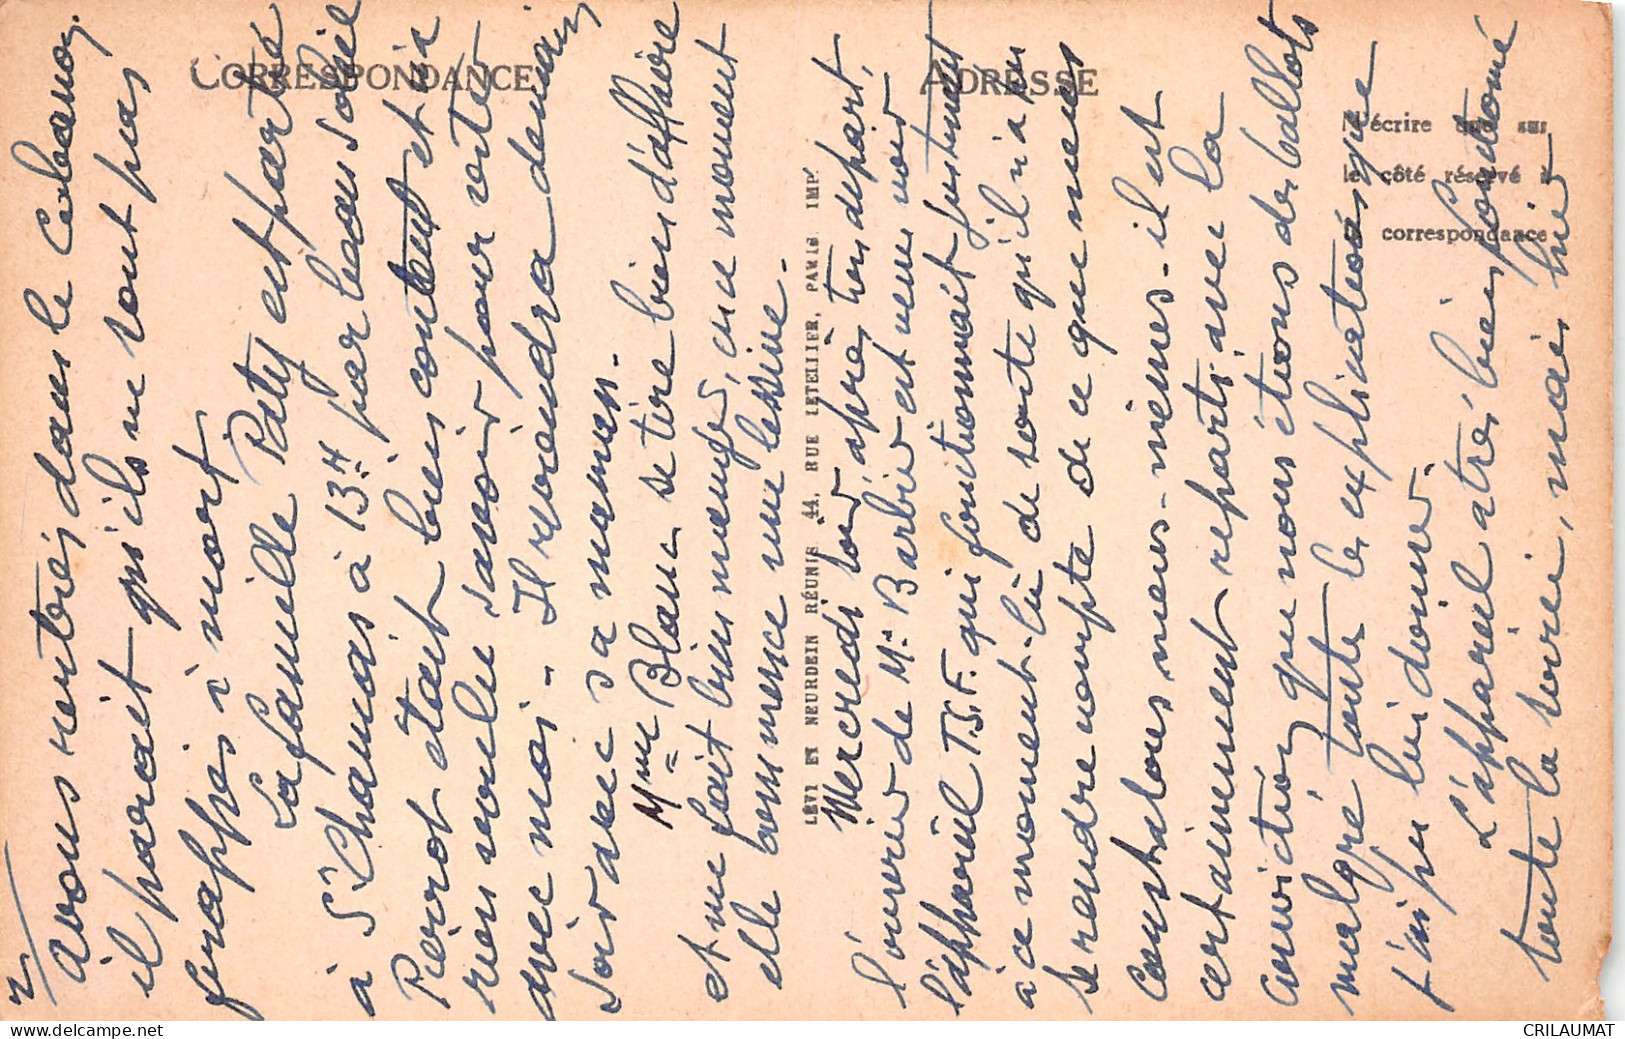 CORRESPONDANCE
ADRESSE
N'écrire que sur
le côté réservé à
la correspondance
LÉVY ET NEURDEIN RÉUNIS, 44, RUE LETELLIER, PARIS IMP.
2/
avons rentrés dans le Cabanon.
il parait qu'ils ne sont pas
frappés à mort
La famille Paty est partie
à St Chamas à 13H. par beau soleil
Pierrot était bien content et n'a
rien voulu savoir pour rester
avec moi. Il reviendra demain
soir avec sa maman.
Mme Blanc se tire bien d'affaire
et me fait bien manger, en ce moment
elle commence une lessive.
Mercredi soir après ton départ,
l'ouvrier de Mr Barbier est venu voir
l'appareil T.S.F. qui fonctionnait justement
à ce moment-là de sorte qu'il n'a pu
se rendre compte de ce que nous
constatons nous-mêmes. il est
certainement reparti avec la
conviction que nous étions des ballots
malgré toute les explications que
j'ai pu lui donner.
L'appareil a très bien fonctionné
toute la soirée, mais hier
CRILAUMAT